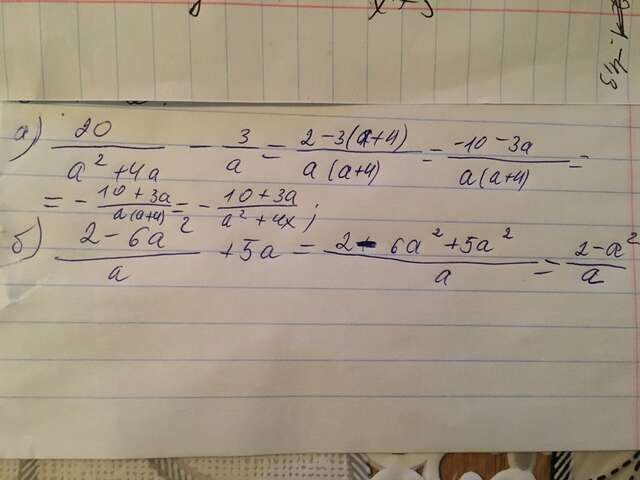 x+5
а) 20/(a² + 4a) - 3/a = (2-3(a+4))/(a(a+4)) = (-10-3a)/(a(a+4)) =
= - (10+3a)/(a(a+4)) = - (10+3a)/(a²+4x);
б) (2-6a²)/a + 5a = (2-6a²+5a²)/a = (2-a²)/a